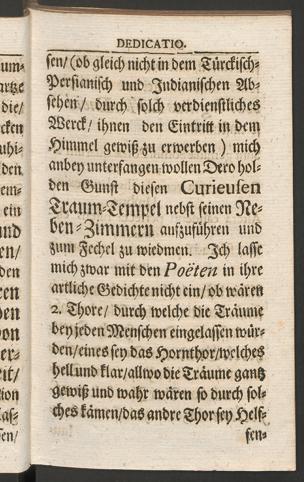 DEDICATIO.
sen/ (ob gleich nicht in dem Türckisch-
Persianisch und Indianischen Ab-
sehen/ durch solch verdienstliches
Werck/ ihnen den Eintritt in dem
Himmel gewiß zu erwerben) mich
anbey unterfangen wollen Dero hol-
den Gunst diesen Curieusen
Traum-Tempel nebst seinen Ne-
ben-Zimmern aufzuführen und
zum Fechel zu wiedmen. Ich lasse
mich zwar mit den Poëten in ihre
artliche Gedichte nicht ein/ ob wären
2. Thore/ durch welche die Träume
bey jeden Menschen eingelassen wür-
den/ eines sey das Hornthor/ welches
hell und klar/ allwo die Träume gantz
gewiß und wahr wären so durch sol-
ches kämen/ das andre Thor sey Helf-
fen-